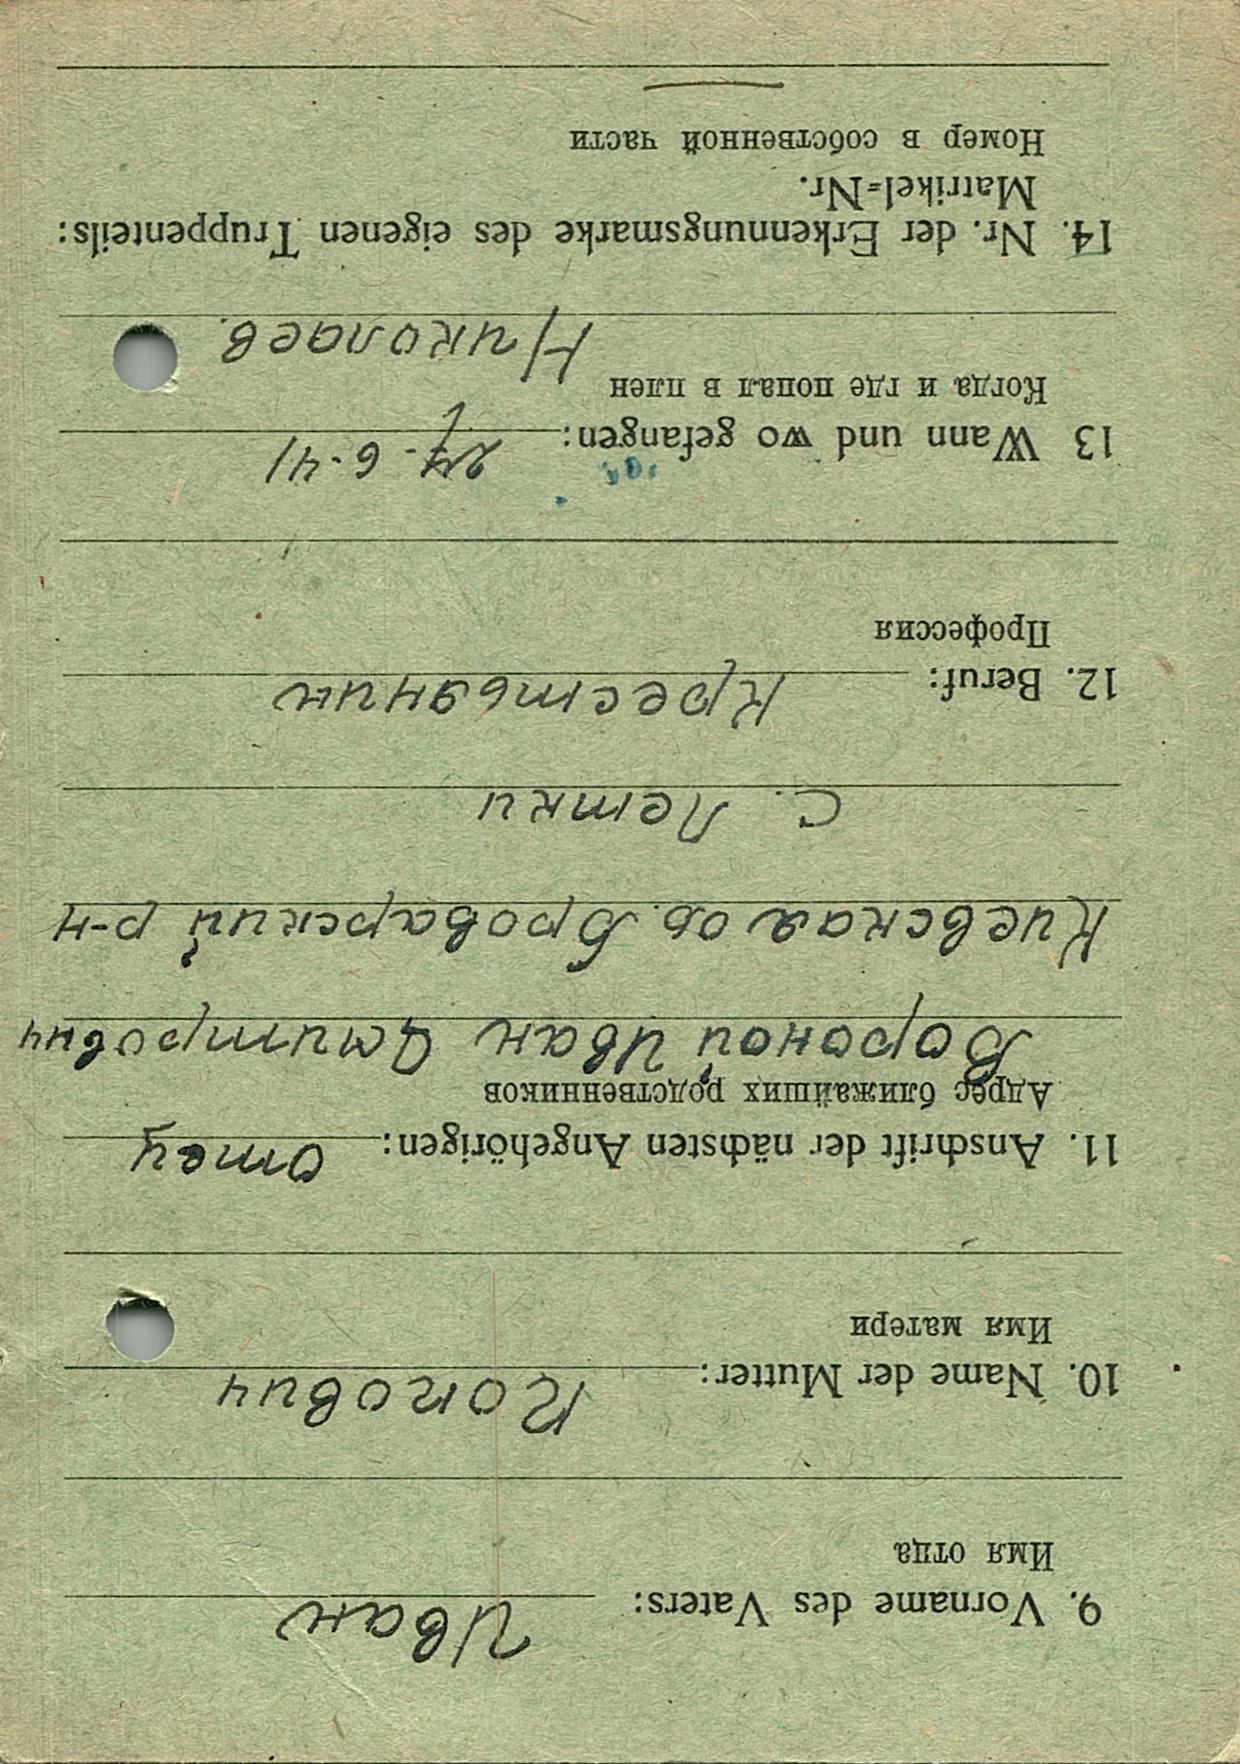 9. Vorname des Vaters: Иван
Имя отца
10. Name der Mutter: Копович
Имя матери
11. Anschrift der nächsten Angehörigen: отец
Адрес ближайших родственников
Вороной Иван Дмитрович
Киевская об. Броварский р-н
с. Летки
12. Beruf: Крестьянин
Профессия
13 Wann und wo gefangen: 27-6-41
Когда и где попал в плен
Николаев.
14. Nr. der Erkennungsmarke des eigenen Truppenteils:
Matrikel=Nr.
Номер в собственной части